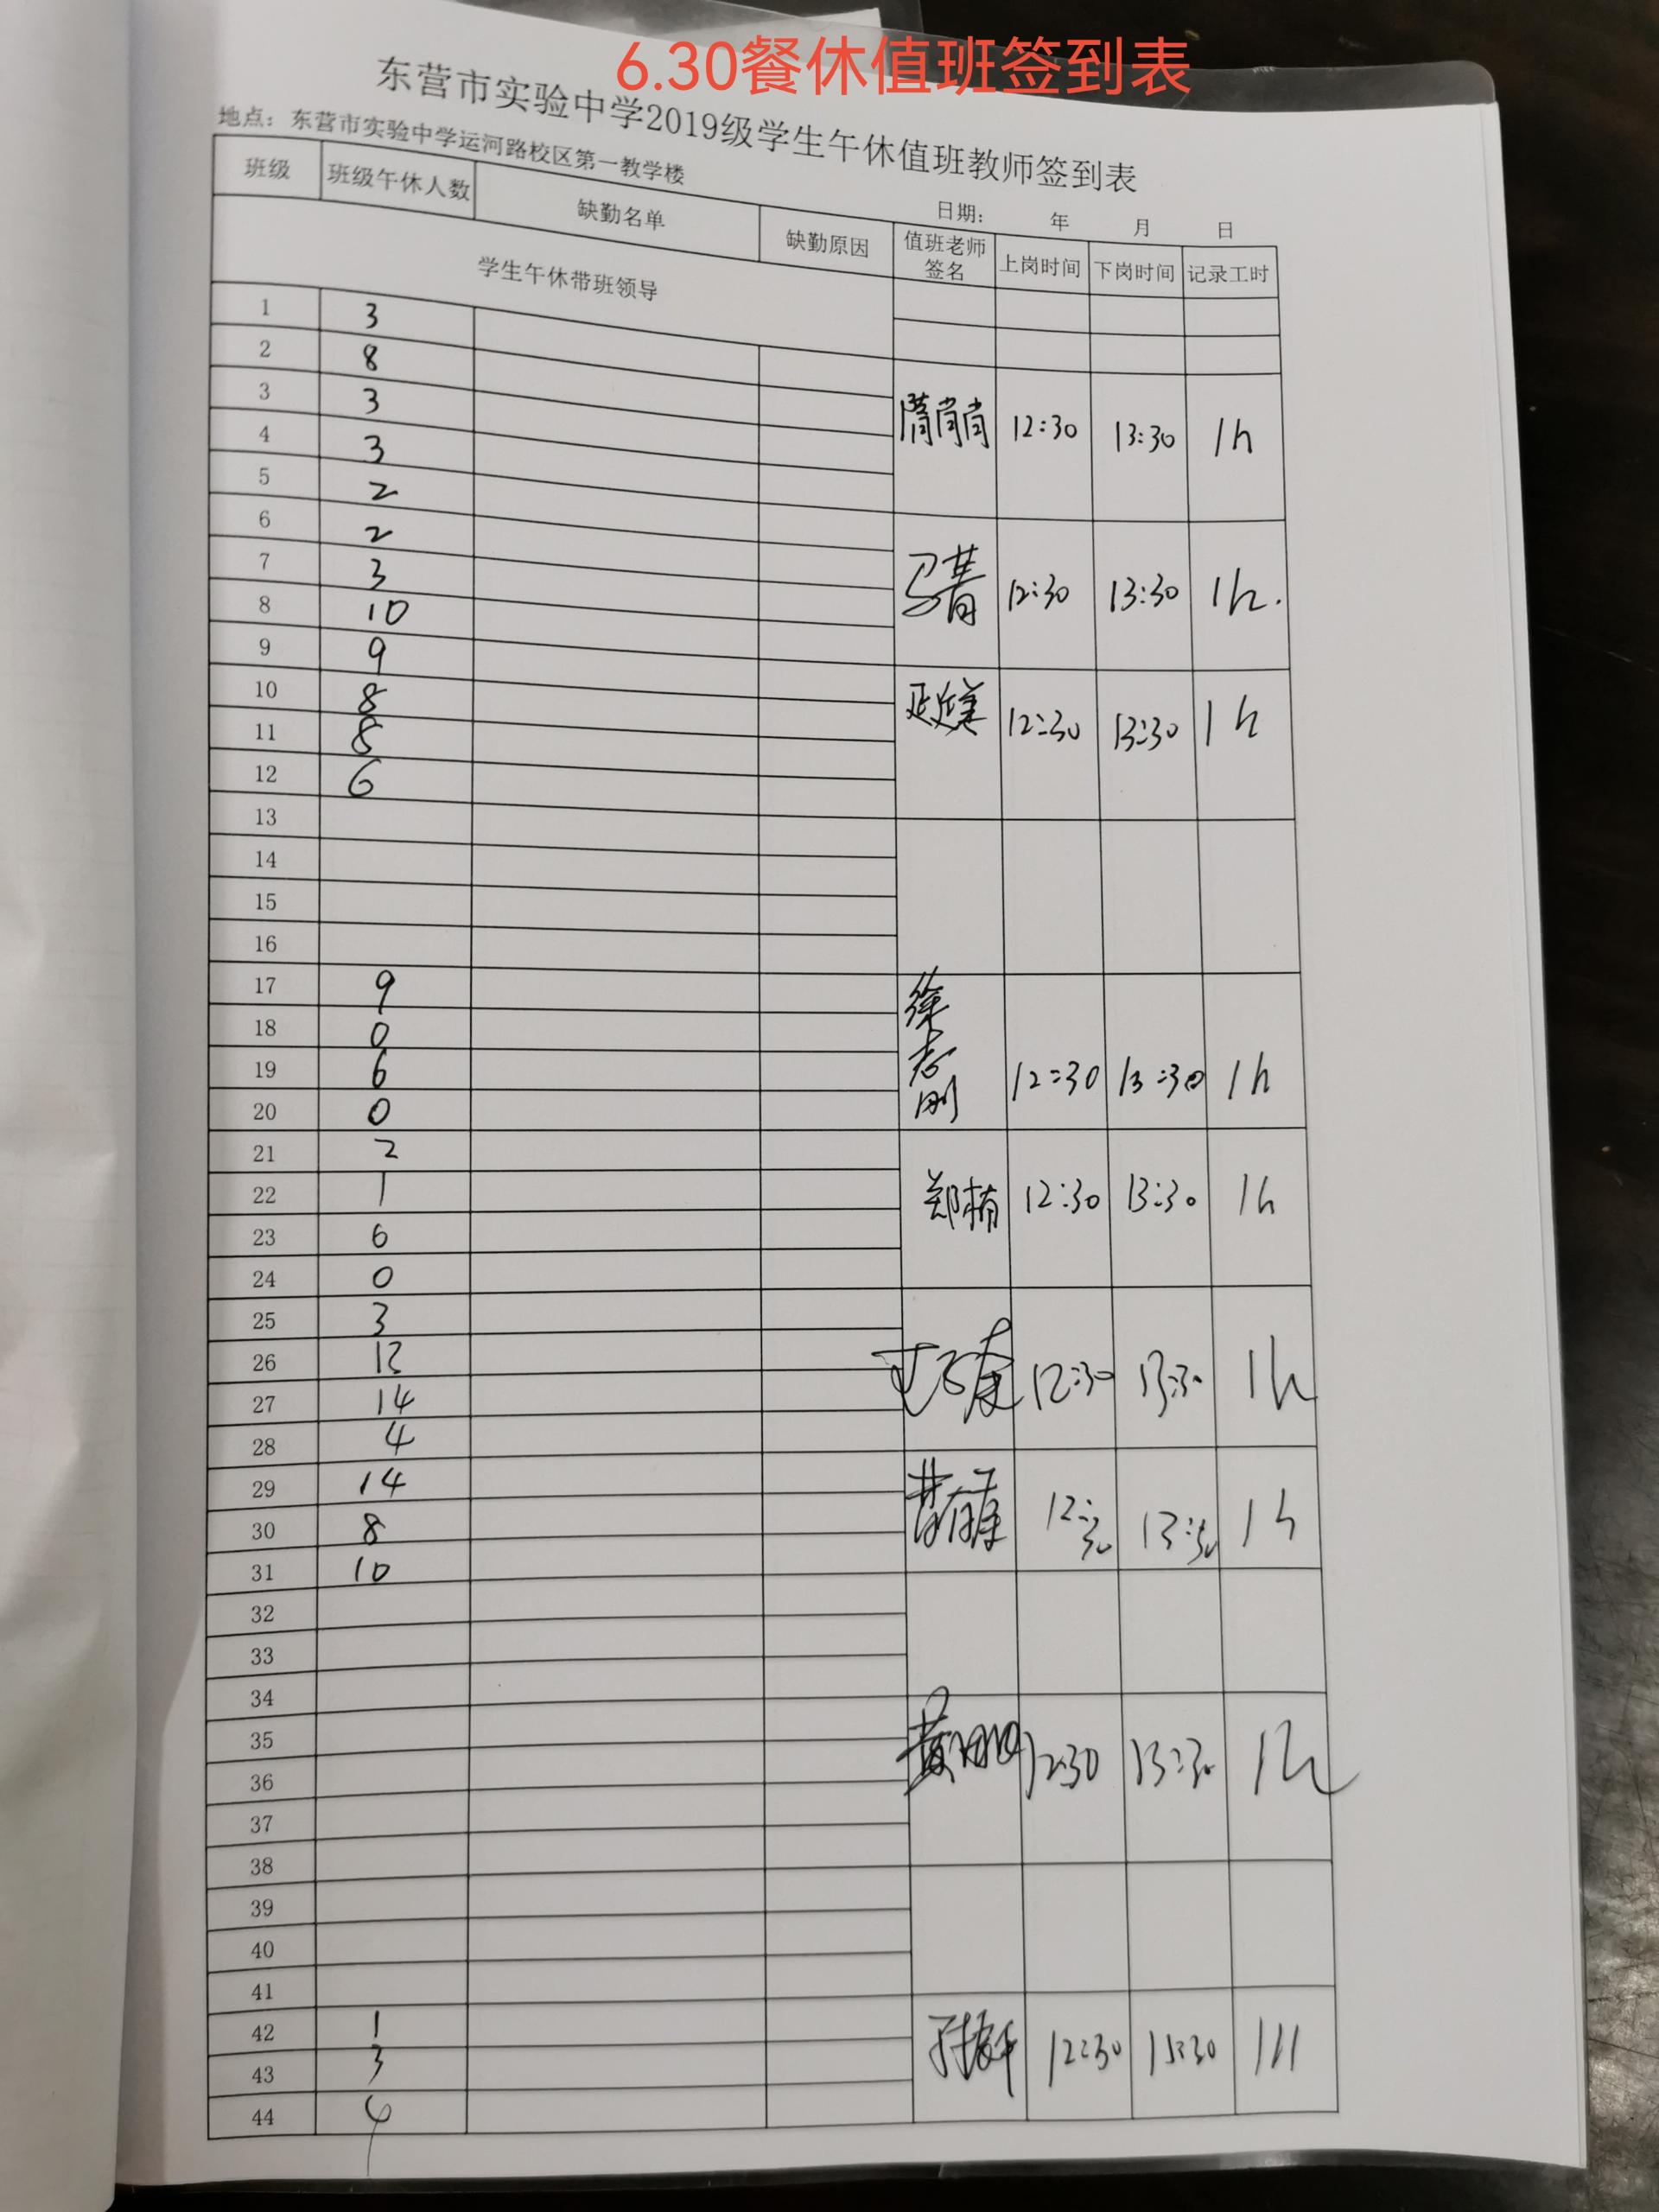 6.30餐休值班签到表
东营市实验中学2019级学生午休值班教师签到表
地点：东营市实验中学运河路校区第一教学楼
日期： 年 月 日
班级 班级午休人数 缺勤名单 缺勤原因 值班老师签名 上岗时间 下岗时间 记录工时
学生午休带班领导
1 3
2 8
3 3 12:30 13:30 1h
4 3
5 2
6 2
7 3 12:30 13:30 1h.
8 10
9 9
10 8 12:30 13:30 1h
11 8
12 6
13
14
15
16
17 9
18 0
19 6 徐志刚 12:30 13:30 1h
20 0
21 2
22 1 郑楠 12:30 13:30 1h
23 6
24 0
25 3
26 12:30 13:30 1h
27 14
28 4
29 14
30 8 12:30 13:30 1h
31 10
32
33
34
35
36 12:30 13:30 1h
37
38
39
40
41
42 1
43 3 12:30
44